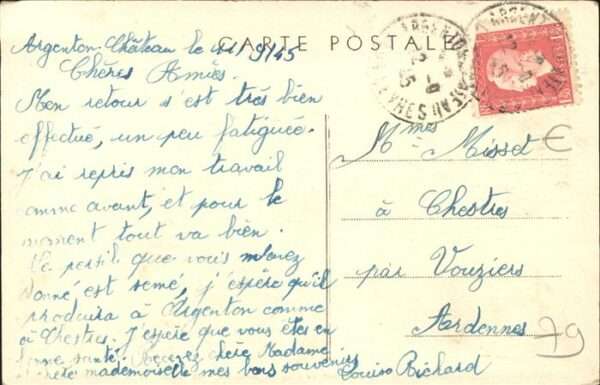 CARTE POSTALE
Argenton-Château le 11/9/45
Chères Amies
Mon retour s'est très bien
effectué, un peu fatiguée.
J'ai repris mon travail
comme avant, et pour le
moment tout va bien.
Le persil que vous m'avez
donné est semé, j'espère qu'il
produira à Argenton comme
à Chestres, J'espère que vous êtes en
bonne santé. Recevez chère Madame
chère mademoiselle mes bons souvenirs
Louise Richard
Mmes Misset
à Chestres
par Vouziers
Ardennes
79
€